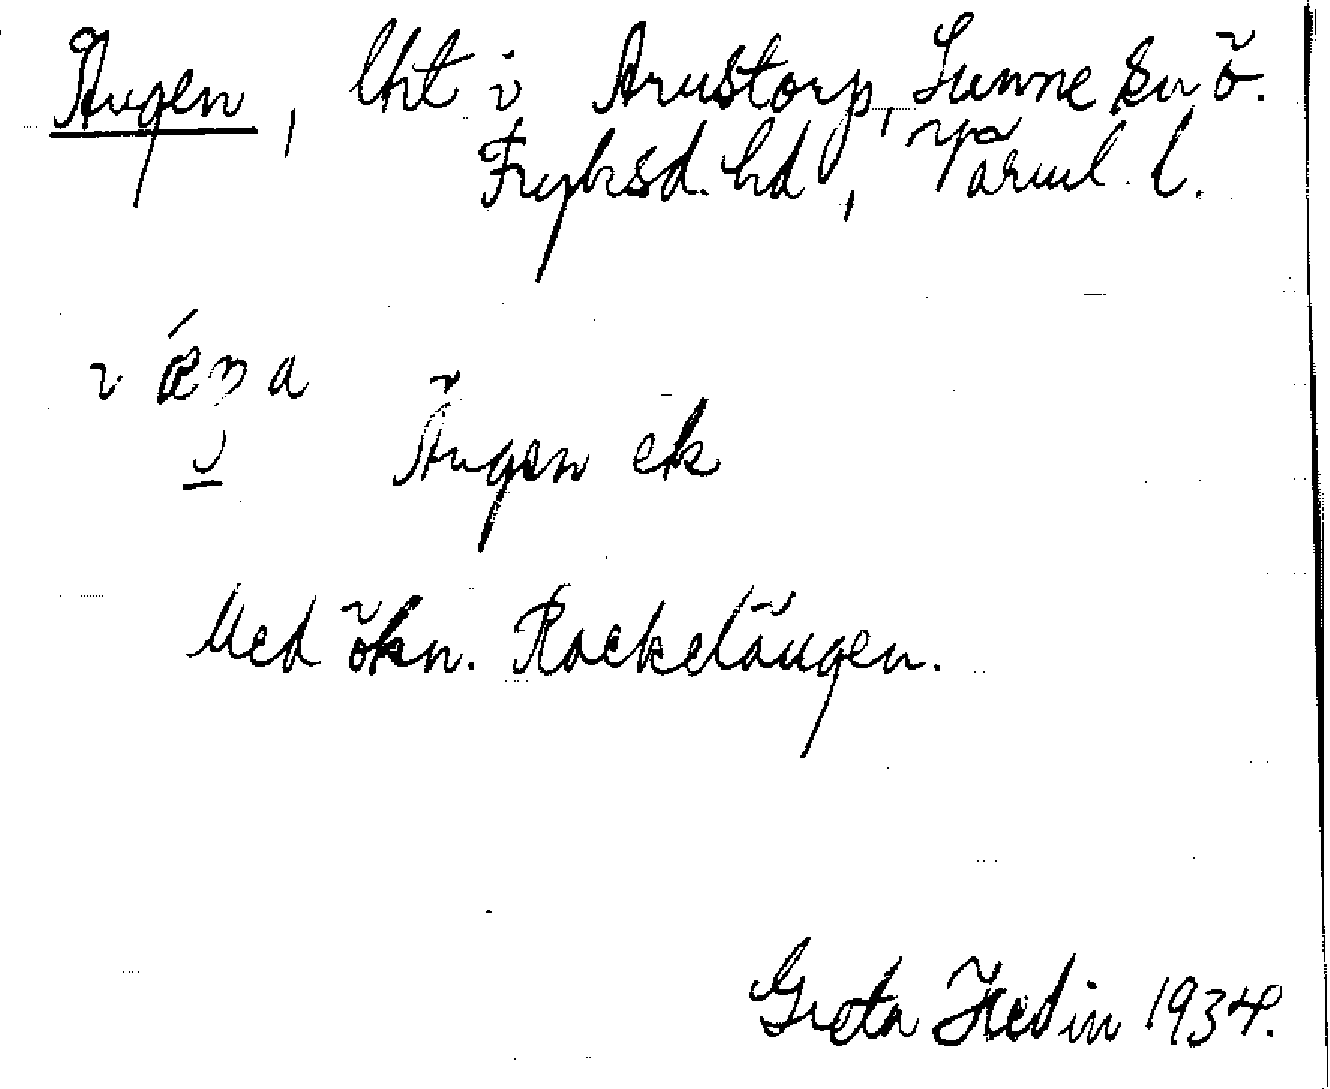 Ängen, lht i Arnstorp, Sunne sn ö.
Fryksd. hd, Värml. l.
i æ̨ŋa
Ängen ek
Med ökn. Rackelängen.
Greta Hedin 1934.